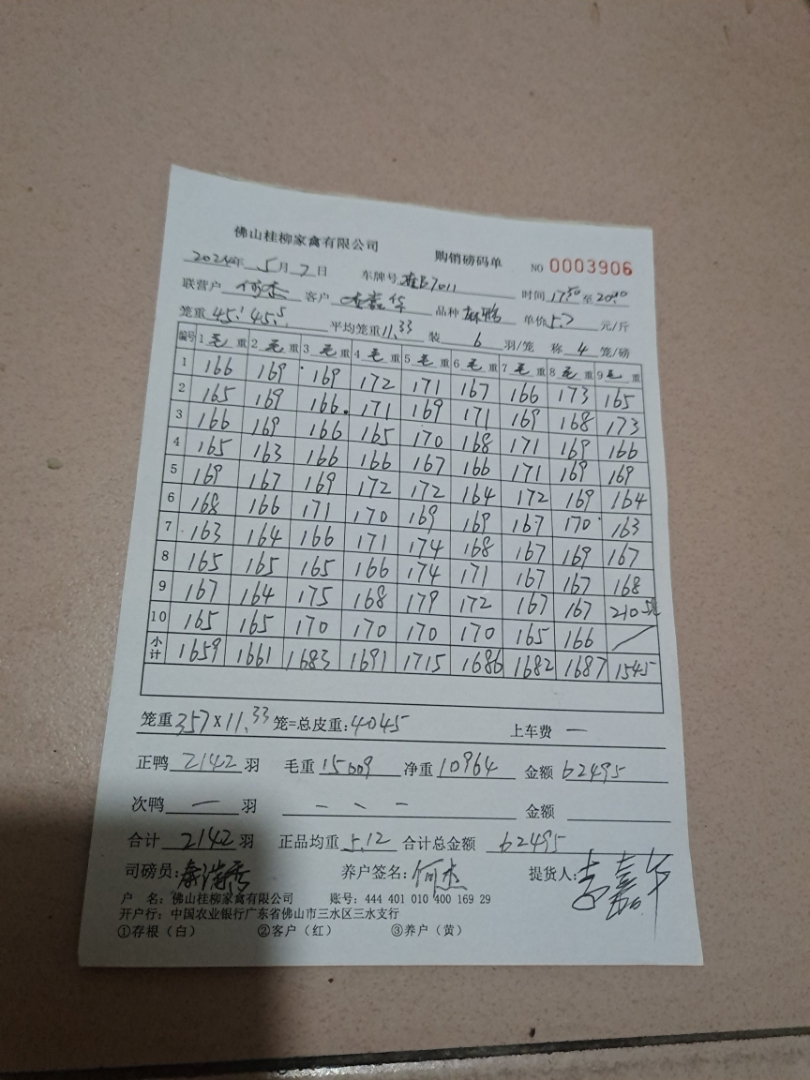 佛山桂柳家禽有限公司 购销磅码单 NO 0003906
2024年 5月2日 车牌号 7011 时间 17:50 至 20:30
联营户 何杰 客户 华 品种 麻鸭 单价 5.7 元/斤
笼重 45.5 45.5 平均笼重 11.33 装 6 羽/笼 称 4 笼/磅
编号 1 毛 重 2 毛 重 3 毛 重 4 毛 重 5 毛 重 6 毛 重 7 毛 重 8 毛 重 9 毛 重
1 166 169 169 172 171 167 166 173 165
2 165 169 166 171 169 171 169 168 173
3 166 169 166 165 170 168 171 169 166
4 165 163 166 166 167 166 171 169 169
5 169 167 169 172 172 164 172 169 164
6 168 166 171 170 169 169 167 170 163
7 163 164 166 171 174 168 167 169 167
8 165 165 165 166 174 171 167 167 168
9 167 164 175 168 179 172 167 167 210 5笼
10 165 165 170 170 170 170 165 166 /
小计 1659 1661 1683 1691 1715 1686 1682 1687 1545
笼重 357×11.33 笼=总皮重: 4045 上车费 —
正鸭 2142 羽 毛重 15009 净重 10964 金额 62495
次鸭 — 羽 — 、 — 金额
合计 2142 羽 正品均重 5.12 合计总金额 62495
司磅员: 养户签名: 何杰 提货人:
户 名: 佛山桂柳家禽有限公司 账号: 444 401 010 400 169 29
开户行: 中国农业银行广东省佛山市三水区三水支行
①存根(白) ②客户(红) ③养户(黄)